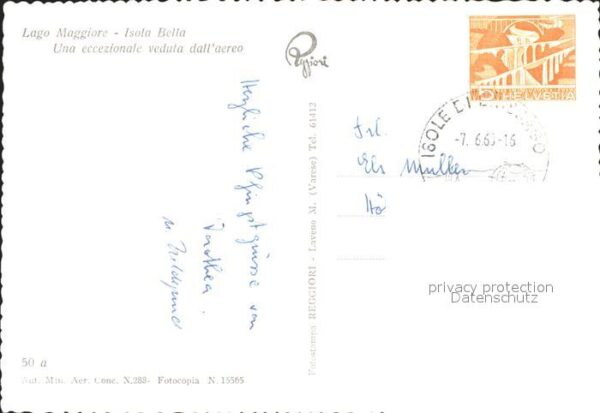 Lago Maggiore - Isola Bella
Una eccezionale veduta dall'aereo
Reggiori
5 HELVETIA
-7. 6.63-16
Herzliche Pfingstgrüsse von
Dorothea
u. Hildegund
Fotostampa REGGIORI - Laveno M. (Varese) Tel. 61412
Frl.
Els Muller
privacy protection
Datenschutz
50 a
Aut. Min. Aer. Conc. N.289- Fotocopia N. 15565